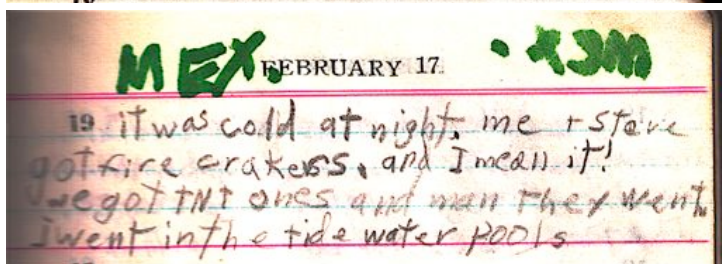 MEX. FEBRUARY 17 .XƎM
19 it was cold at night. me + Steve
got fire crakers, and I mean it!
we got TNT ones and man They went.
I went in the tide water pools